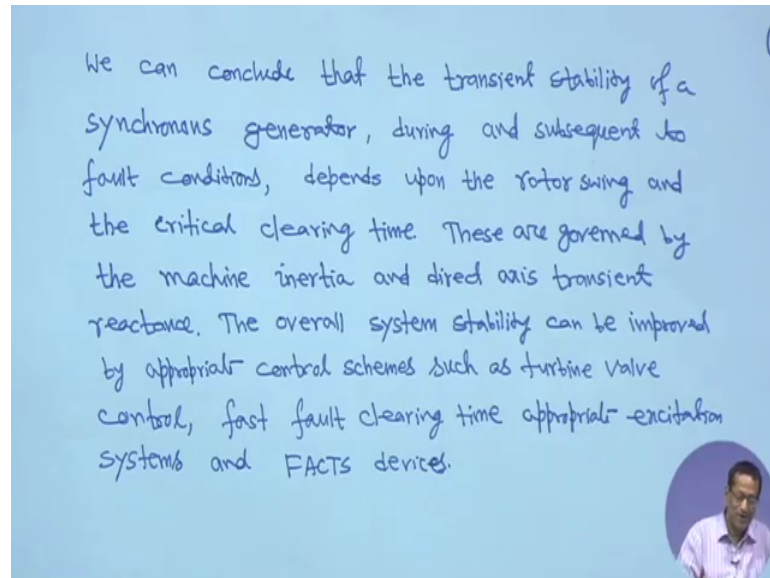 We can conclude that the transient stability of a
synchronous generator, during and subsequent to
fault conditions, depends upon the rotor swing and
the critical clearing time. These are governed by
the machine inertia and direct axis transient
reactance. The overall system stability can be improved
by appropriat control schemes such as turbine valve
control, fast fault clearing time appropriat excitation
systems and FACTS devices.